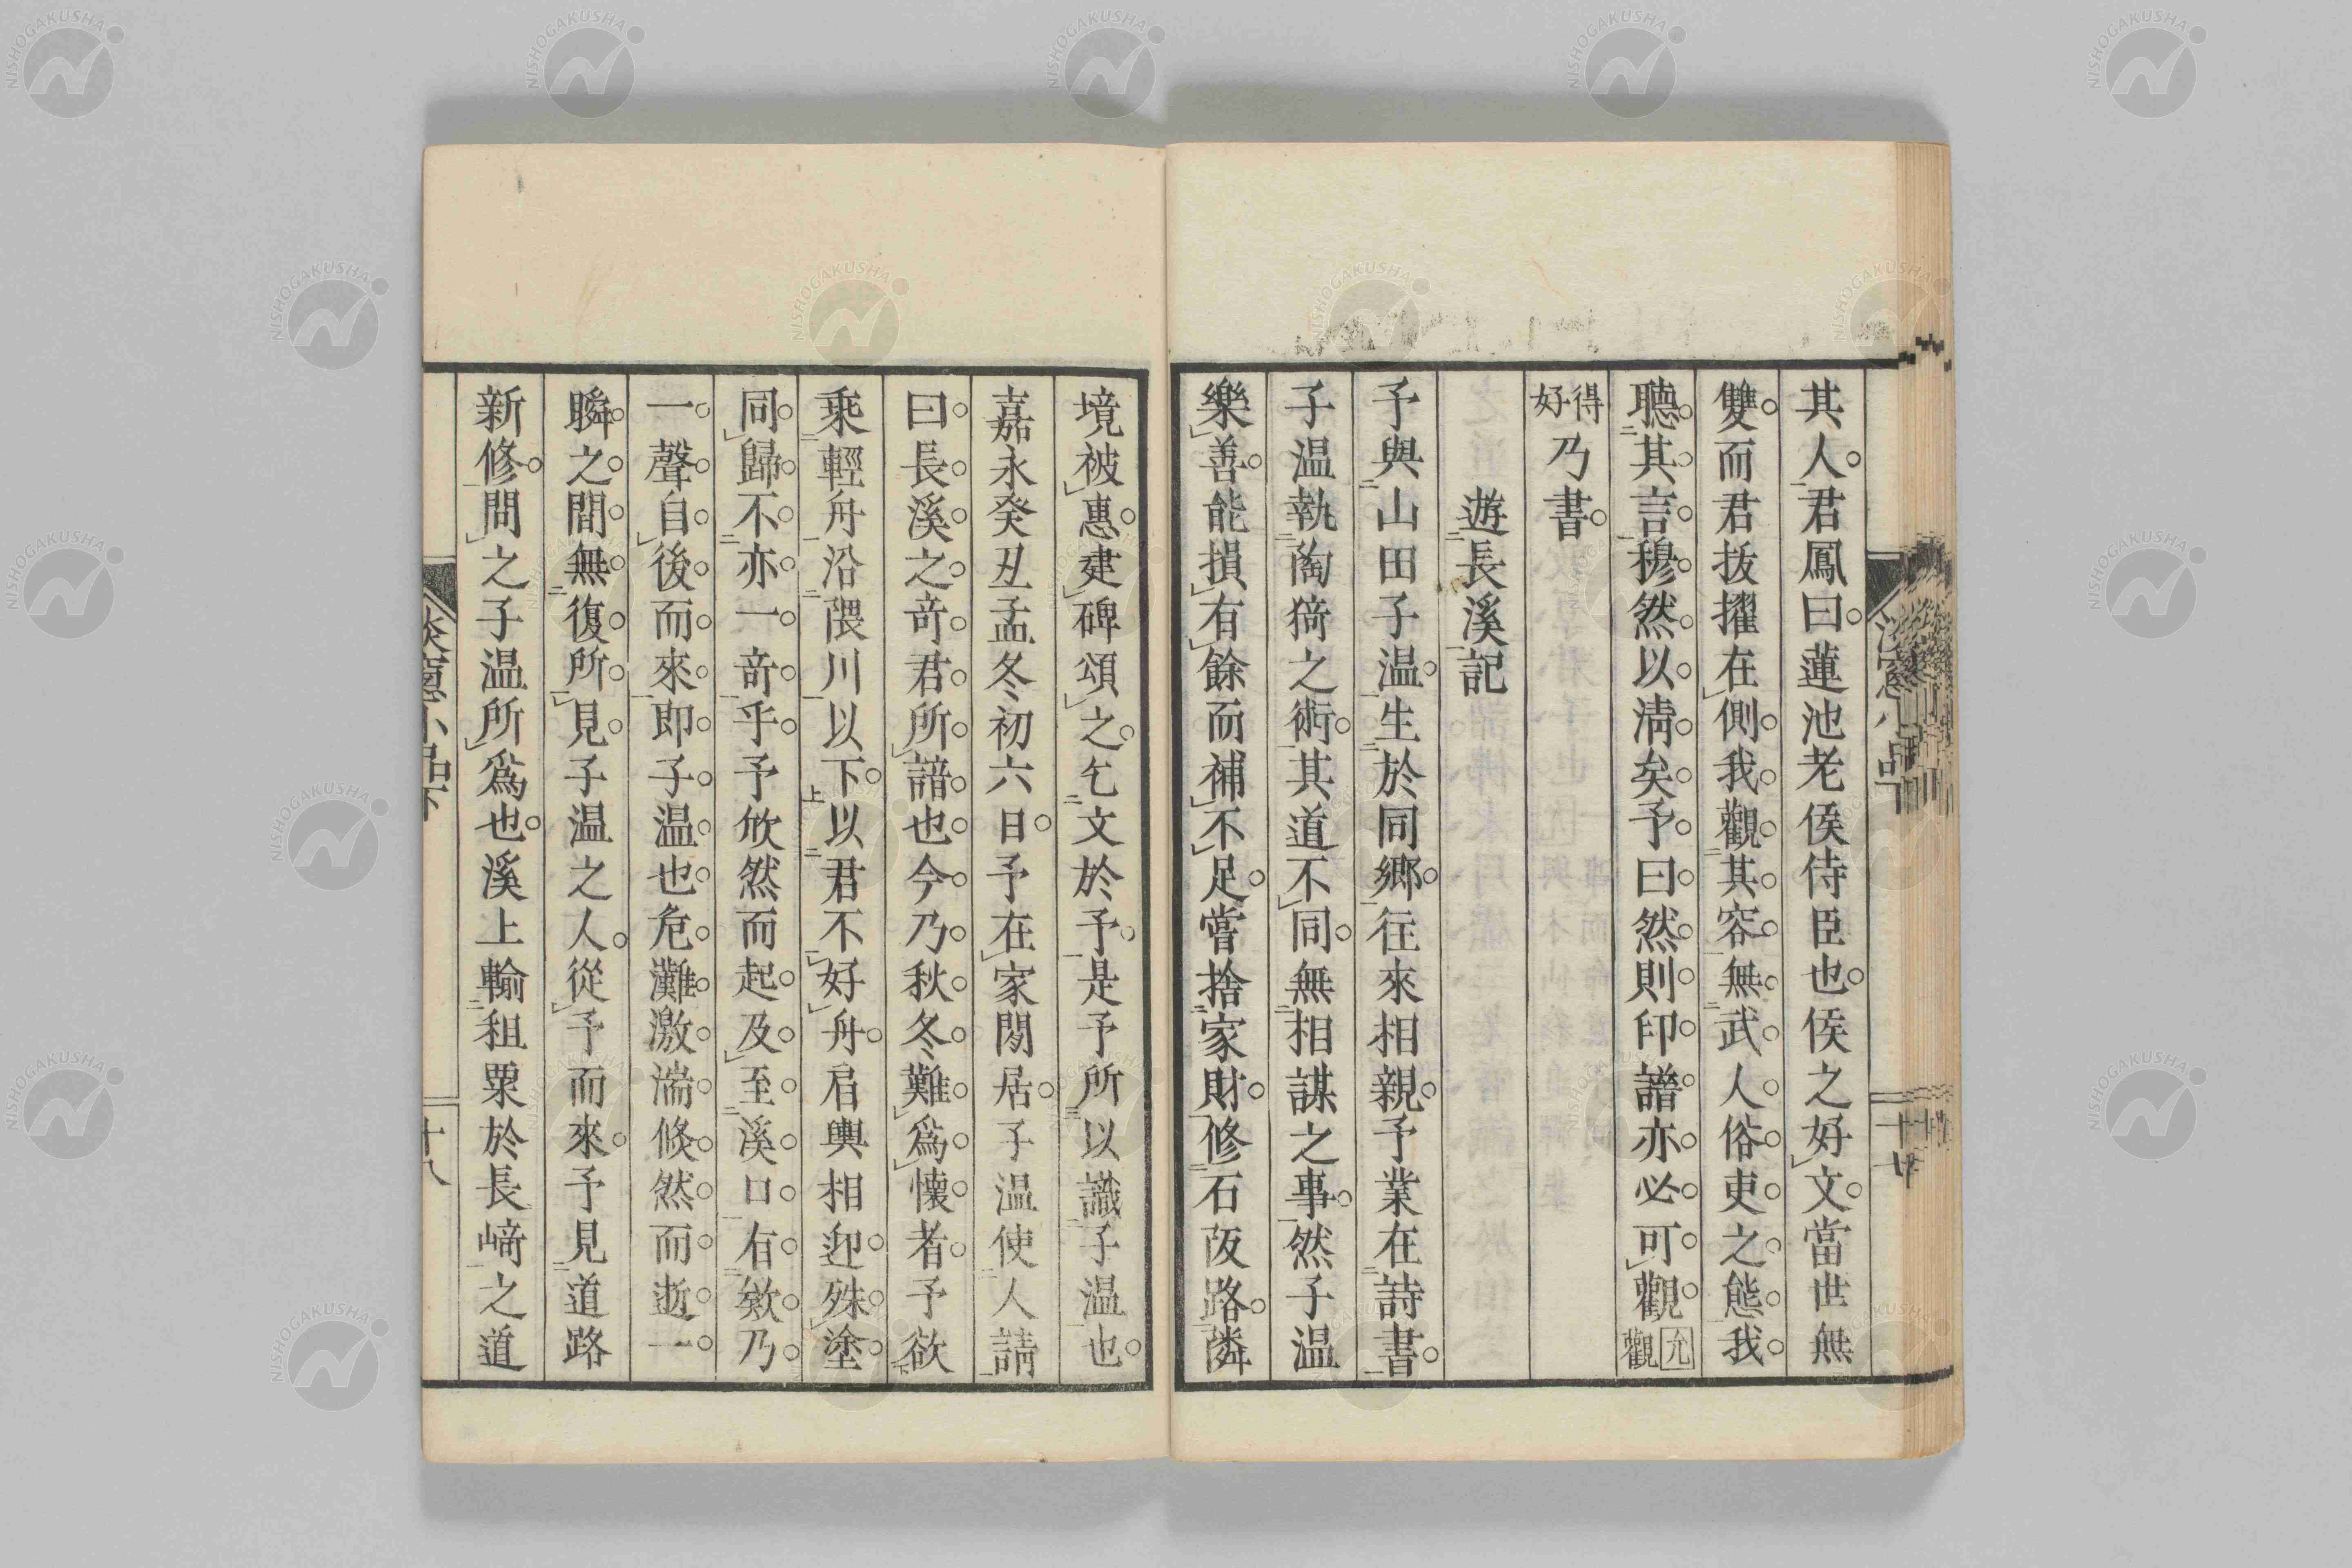 其人君鳳曰蓮池老侯侍臣也侯之好文當世無
雙而君抜擢在側我觀其容無武人俗吏之態我
聽其言穆然以淸矣予曰然則印譜亦必可觀允觀
得好乃書
遊長溪記
予與山田子温生於同鄉往來相親予業在詩書
子温執陶猗之術其道不同無相謀之事然子温
樂善能損有餘而補不足嘗捨家財修石阪路隣
境被惠建碑頌之乞文於予是予所以識子温也
嘉永癸丑孟冬初六日予在家閒居子温使人請
曰長溪之奇君所諳也今乃秋冬難爲懷者予欲
乘輕舟沿隈川以下以君不好舟肩輿相迎殊塗
同歸不亦一奇乎予欣然而起及至溪口有欸乃
一聲自後而來即子温也危灘激湍倐然而逝一
瞬之間無復所見子温之人從予而來予見道路
新修問之子温所爲也溪上輸租粟於長崎之道
淡窻小品下
十八
NISHOGAKUSHA